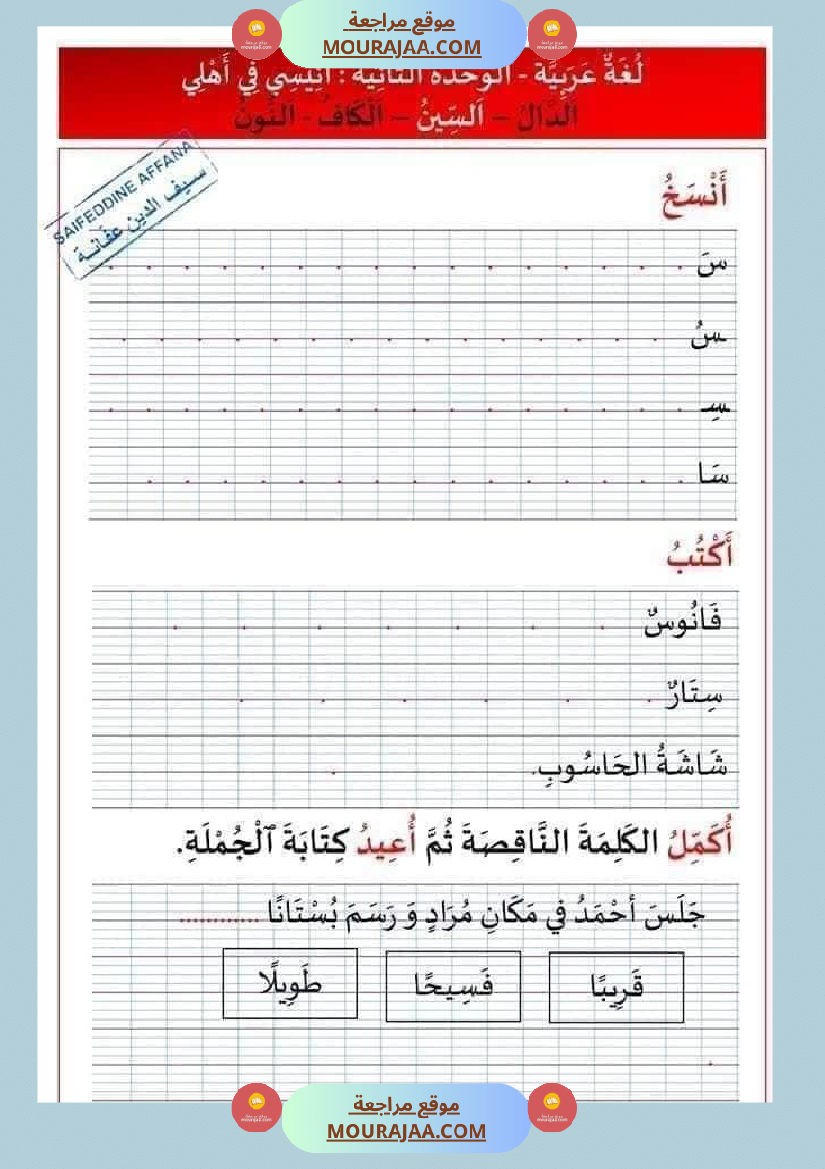 موقع مراجعة
MOURAJAA.COM
لُغَةٌ عَرَبِيَّة - الوحدة الثانية : أَنِيسِي فِي أَهْلِي
اَلدَّالُ – اَلسِّينُ – اَلْكَافُ - النُّونُ
SAIFEDDINE AFFANA
سيف الدين عفانة
أَنْسَخُ
سَ
سُ
سِ
سَا
أَكْتُبُ
فَانُوسٌ
سِتَارٌ
شَاشَةُ الحَاسُوبِ.
أُكَمِّلُ الكَلِمَةَ النَّاقِصَةَ ثُمَّ أُعِيدُ كِتَابَةَ ٱلْجُمْلَةِ.
جَلَسَ أحْمَدُ فِي مَكَانِ مُرَادٍ وَ رَسَمَ بُسْتَانًا ............
قَرِيبًا فَسِيحًا طَوِيلًا
موقع مراجعة
MOURAJAA.COM